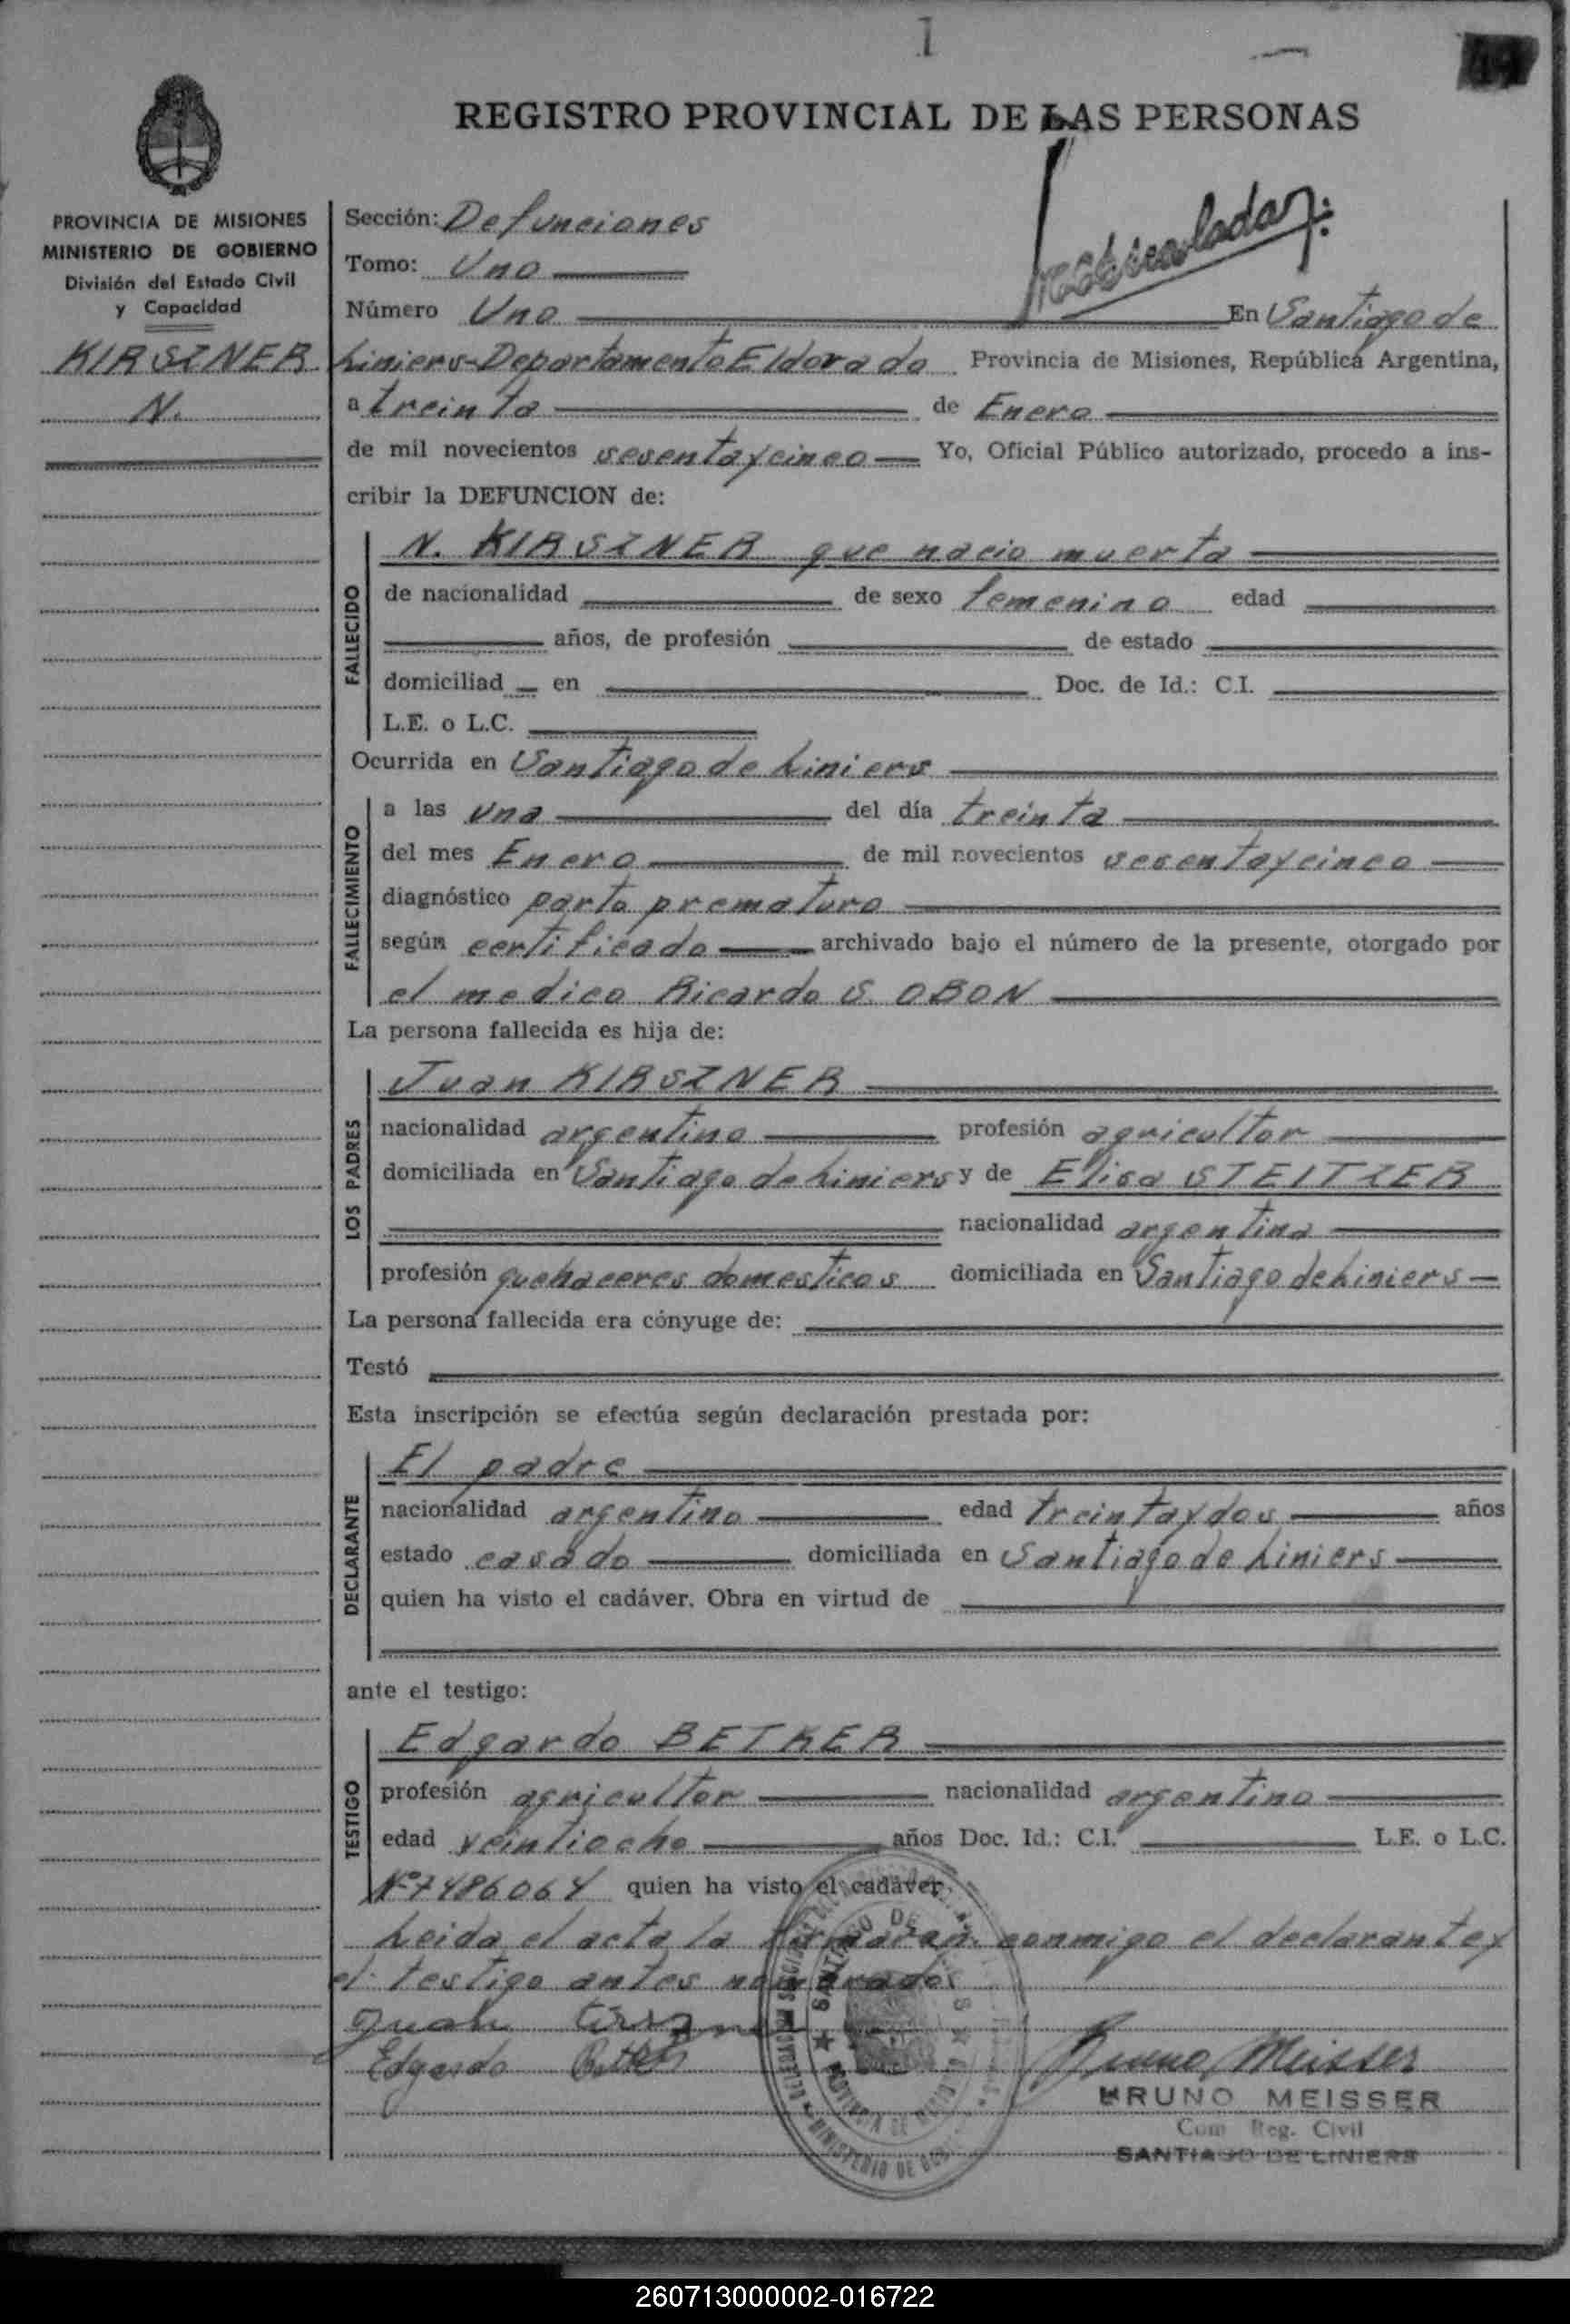 1
REGISTRO PROVINCIAL DE LAS PERSONAS
PROVINCIA DE MISIONES
MINISTERIO DE GOBIERNO
División del Estado Civil
y Capacidad
KIRSZNER
N.
Sección: Defunciones
Tomo: Uno
Número Uno En Santiago de
Liniers-Departamento Eldorado Provincia de Misiones, República Argentina,
a treinta de Enero
de mil novecientos sesentaycinco Yo, Oficial Público autorizado, procedo a ins-
cribir la DEFUNCION de:
FALLECIDO
N. KIRSZNER que nacio muerta
de nacionalidad de sexo femenino edad
años, de profesión de estado
domiciliad en Doc. de Id.: C.I.
L.E. o L.C.
Ocurrida en Santiago de Liniers
FALLECIMIENTO
a las una del día treinta
del mes Enero de mil novecientos sesentaycinco
diagnóstico parto prematuro
según certificado archivado bajo el número de la presente, otorgado por
el medico Ricardo S. OBON
La persona fallecida es hija de:
LOS PADRES
Juan KIRSZNER
nacionalidad argentino profesión agricultor
domiciliada en Santiago de Liniers y de Elisa STEITZER
nacionalidad argentina
profesión quehaceres domesticos domiciliada en Santiago de Liniers
La persona fallecida era cónyuge de:
Testó
Esta inscripción se efectúa según declaración prestada por:
DECLARANTE
El padre
nacionalidad argentino edad treintaydos años
estado casado domiciliada en Santiago de Liniers
quien ha visto el cadáver. Obra en virtud de
ante el testigo:
TESTIGO
Edgardo BETKER
profesión agricultor nacionalidad argentino
edad veintiocho años Doc. Id.: C.I. L.E. o L.C.
Nº7486064 quien ha visto el cadáver
Leida el acta la firmaron conmigo el declarante y
el testigo antes nombrado
Juan
Edgardo
Bruno Meisser
BRUNO MEISSER
Com Reg. Civil
SANTIAGO DE LINIERS
260713000002-016722